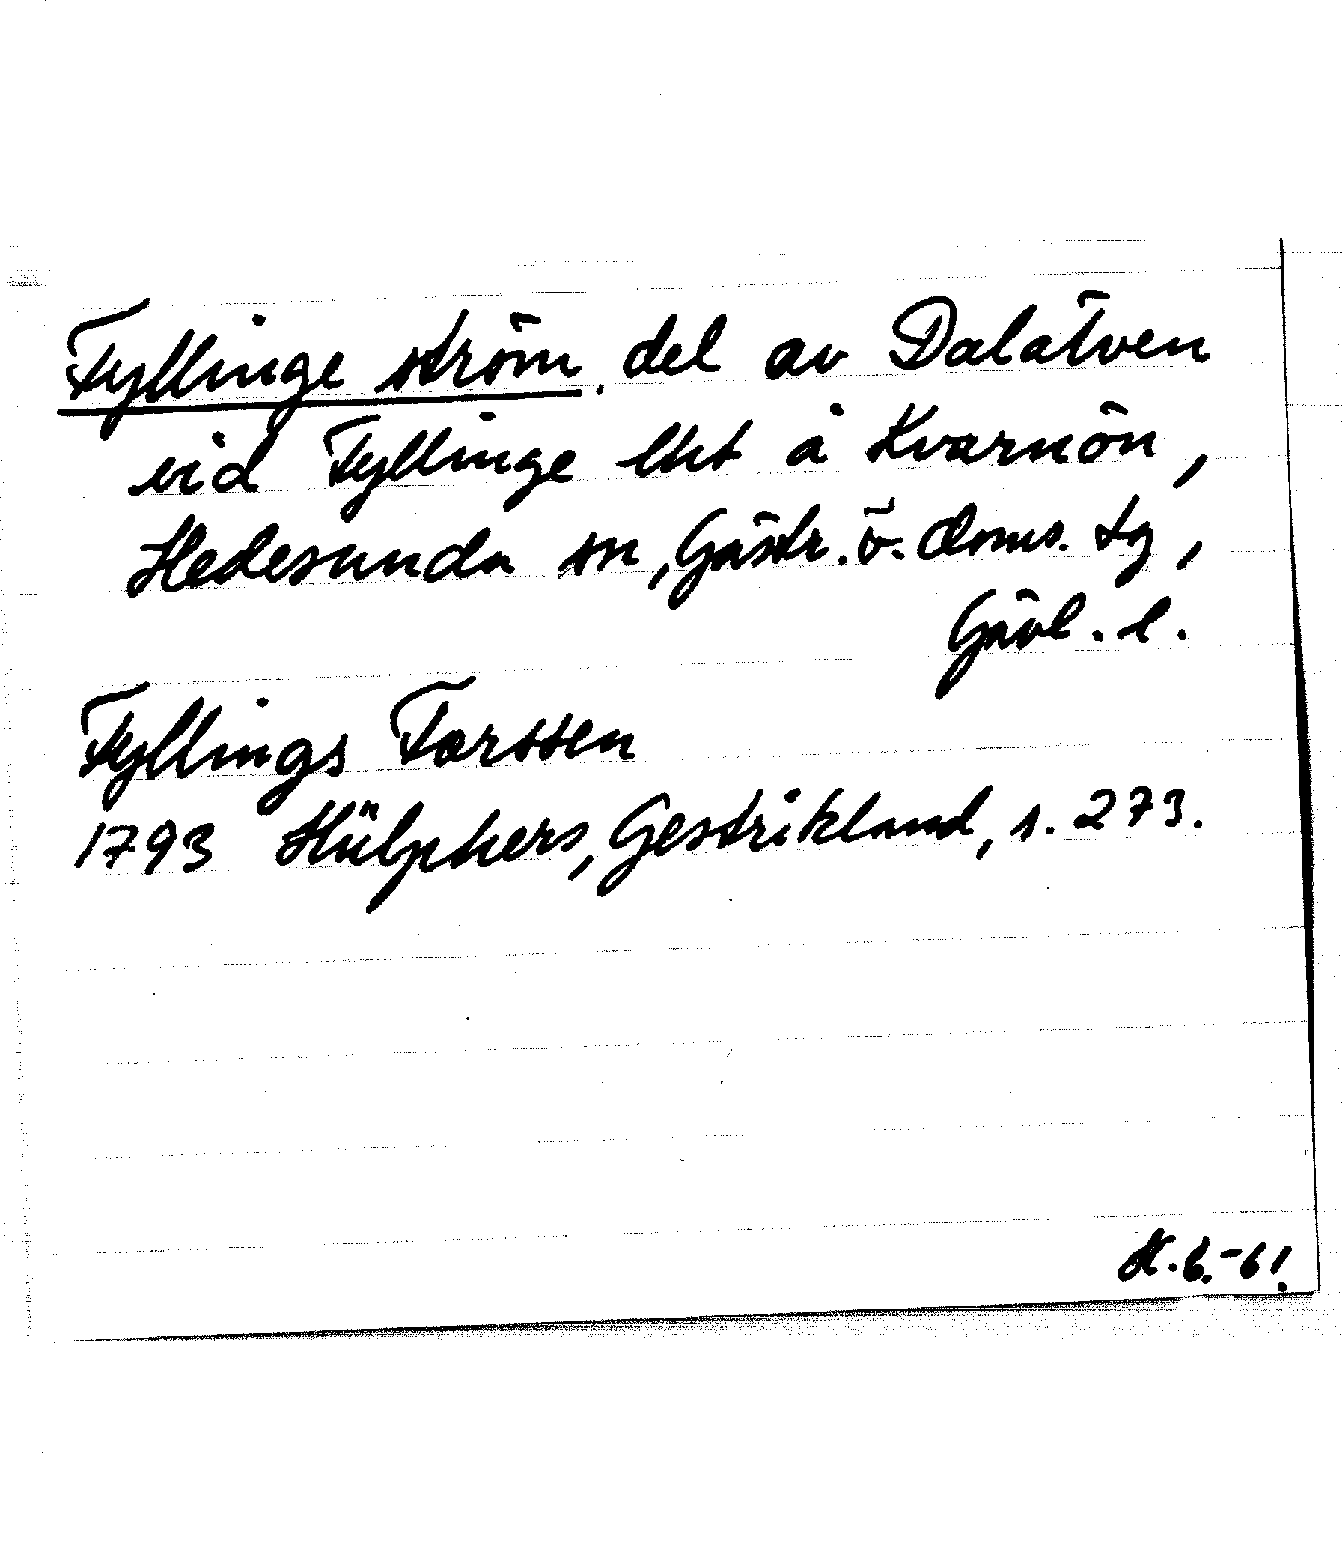 Fyllinge ström, del av Dalälven
vid Fyllinge lht å Kvarnön,
Hedesunda sn, Gästr. ö. doms. tg,
Gävl. l.
Fyllings Forssen
1793 Hülphers, Gestrikland, s. 273.
H. 6.-61.